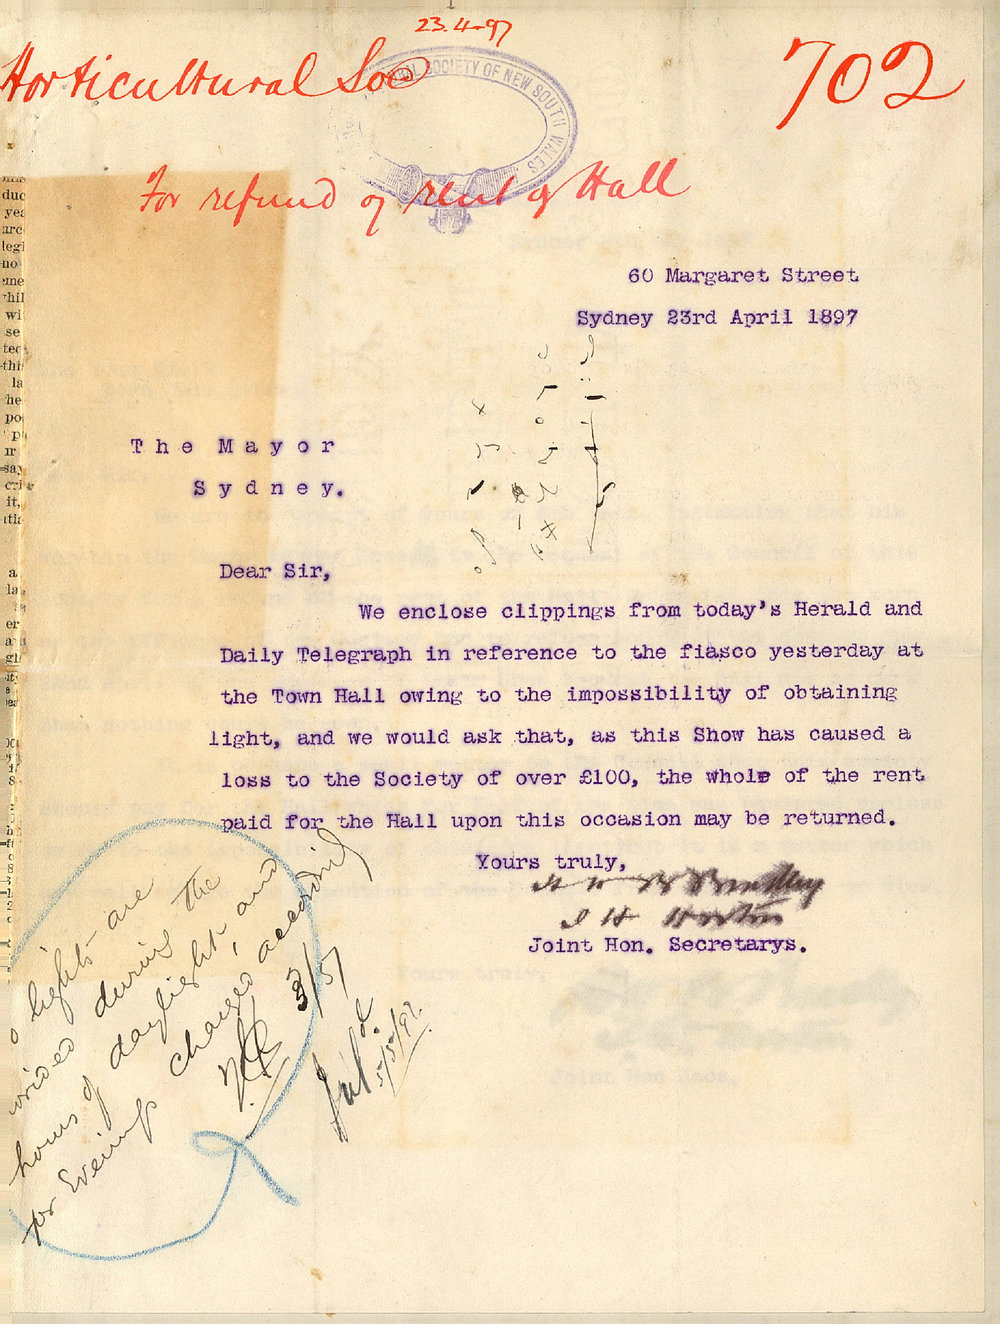 23.4-97
Horticultural Soc
702
SOCIETY OF NEW SOUTH WALES
For refund of rent of Hall
60 Margaret Street
Sydney 23rd April 1897
The Mayor
Sydney.
Dear Sir,
We enclose clippings from today's Herald and
Daily Telegraph in reference to the fiasco yesterday at
the Town Hall owing to the impossibility of obtaining
light, and we would ask that, as this Show has caused a
loss to the Society of over £100, the whole of the rent
paid for the Hall upon this occasion may be returned.
Yours truly,
J H Horton
Joint Hon. Secretarys.
o lights are
ovided during the
hours of daylight, and
for Evening charged according
3/5/
5/5/97.